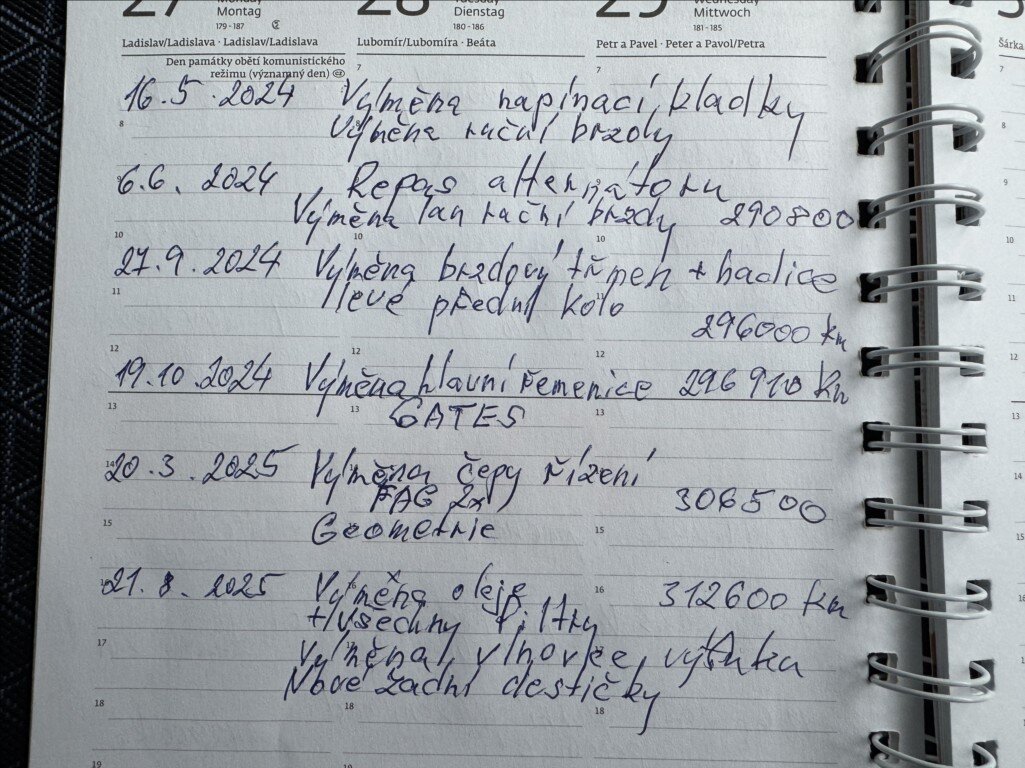 27 Monday
Montag
179 - 187
Ladislav/Ladislava · Ladislav/Ladislava
Den památky obětí komunistického
režimu (významný den)
28 Tuesday
Dienstag
180 - 186
Lubomír/Lubomíra · Beáta
29 Wednesday
Mittwoch
181 - 185
Petr a Pavel · Peter a Pavol/Petra
Šárka
7 7 7
16.5.2024 Výměna napínací kladky
8
Výměna ruční brzdy
6.6. 2024 Repas alternátoru
Výměna lan ruční brzdy 290800
10 10 10
27.9.2024 Výměna brzdový třmen + hadice
11
levé přední kolo
296000 km
12 12 12
19.10.2024 Výměna hlavní řemenice 296910 km
13 13 13
GATES
14
20.3.2025 Výměna čepy řízení
FAG 2x 306500
15 15
Geometrie
16 16
21.8.2025 Výměna oleje 312600 km
+ všechny filtry
17
Výměna vlnovce výfuku
Nové zadní destičky
18 18 18
19